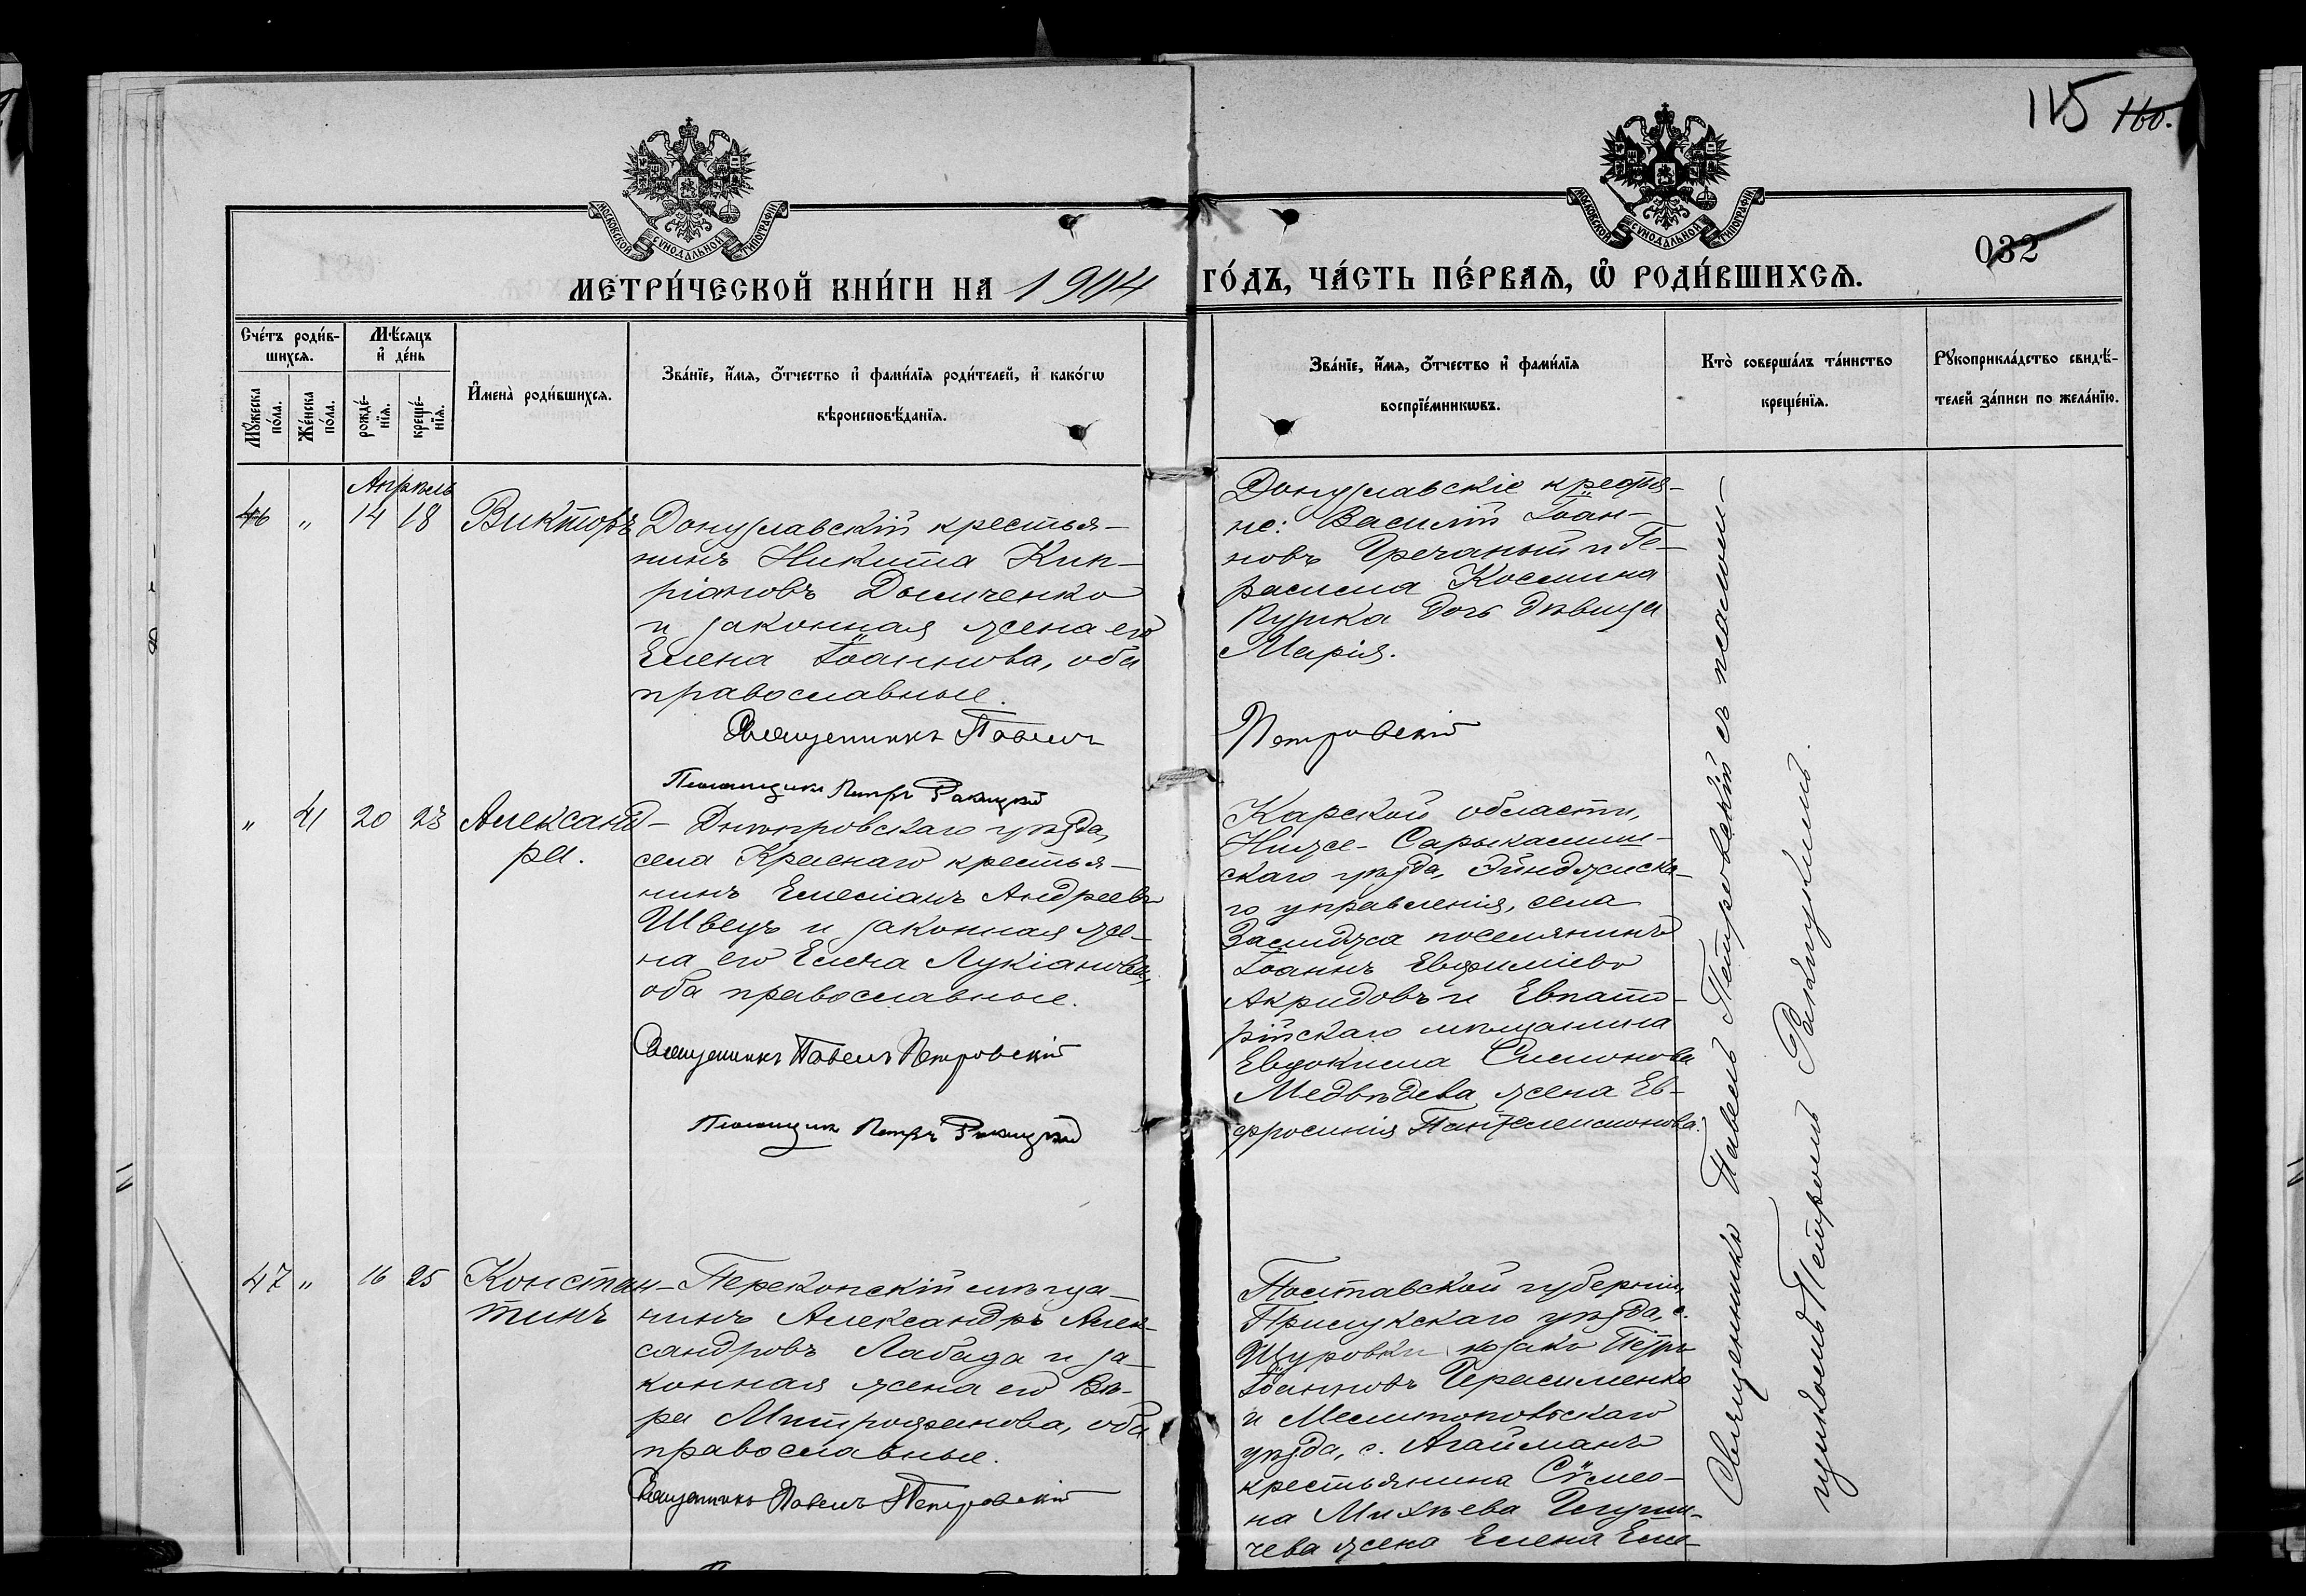 115 160.
МОСКОВСКОЙ СѴНОДАЛЬНОЙ ТИПОГРАФІИ
МОСКОВСКОЙ СѴНОДАЛЬНОЙ ТИПОГРАФІИ
032
МЕТРИ́ЧЕСКОЙ КНИ́ГИ НА 1904 ГО́ДЪ, ЧА́СТЬ ПЕ́РВАѦ, Ѡ҆ РОДИ́ВШИХСѦ.
Сче́тъ роди́в-
шихсѧ.
Мꙋжеска по́ла.
Же́нска по́ла.
Мѣ́сѧцъ
и҆ де́нь
рожде́-
нїѧ.
креще́-
нїѧ.
И҆мена̀ роди́вшихсѧ.
Зва́нїе, и҆́мѧ, ѻ҆́тчество и҆ фами́лїѧ роди́телей, и҆ како́гѡ
вѣроисповѣ́данїѧ.
Зва́нїе, и҆́мѧ, ѻ҆́тчество и҆ фами́лїѧ
воспрїе́мникѡвъ.
Кто̀ соверша́лъ та́инство
креще́нїѧ.
Рꙋкоприкла́дство свидѣ́-
телей за́писи по жела́нїю.
Апрѣль
46 " 14 18 Викторъ
Донузлавскій крестья-
нинъ Никита Кип-
ріановъ Домиченко
и законная жена его
Елена Іоаннова, оба
православные.
Священникъ Павелъ
Петровскій
Псаломщикъ Петръ Ракицкій
Донузлавскіе крестья-
не: Василій Іоан-
новъ Гречаный и Ге-
расима Космина
Пузика дочь дѣвица
Марія.
" 41 20 23 Александ-
ра.
Днѣпровскаго уѣзда,
села Краснаго крестья-
нинъ Емеліанъ Андреевъ
Швецъ и законная же-
на его Елена Лукіанова,
оба православные.
Священникъ Павелъ Петровскій
Псаломщикъ Петръ Ракицкій
Карской области,
Ниже-Сарыкамыш-
скаго уѣзда,
го управленія, села
поселянинъ
Іоаннъ Евфиміевъ
Акридовъ и Евпато-
рійскаго мѣщанина
Евдокима Симонова
Медвѣдева жена Ев-
фросинія Пантелеимонова.
47 " 16 25 Констан-
тинъ
Перекопскій мѣща-
нинъ Александръ Алек-
сандровъ Лабада и за-
конная жена его Вѣ-
ра Митрофанова, оба
православные.
Священникъ Павелъ Петровскій
Полтавской губерніи,
Прилукскаго уѣзда, с.
Щуровки козакъ Петръ
Іоанновъ Герасименко
и Мелитопольскаго
уѣзда, с. Агайманъ
крестьянина Сѵмео-
на Михѣева
чева жена Елена Еме-
Священникъ Павелъ Петровскій съ псалом-
щикомъ Петромъ Ракицкимъ.